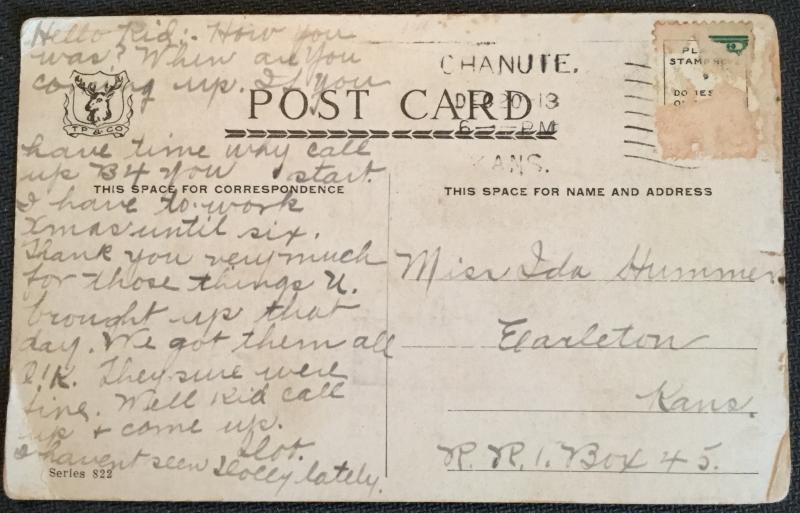 Hello Kid:- How you
was? When are you
coming up. If you
have time why call
up B4 you start.
I have to work
Xmas until six.
Thank you very much
for those things U.
brought up that
day. We got them all
O.K. They sure were
fine. Well Kid call
up + come up.
Dot.
I havent seen Dolly lately.
T P & CO
Series 822
POST CARD
THIS SPACE FOR CORRESPONDENCE
CHANUTE,
DEC 20 13
6 - PM
KANS.
PL
STAMP
DOMES
THIS SPACE FOR NAME AND ADDRESS
Miss Ida Hummer
Earleton
Kans.
R. R. 1. Box 45.